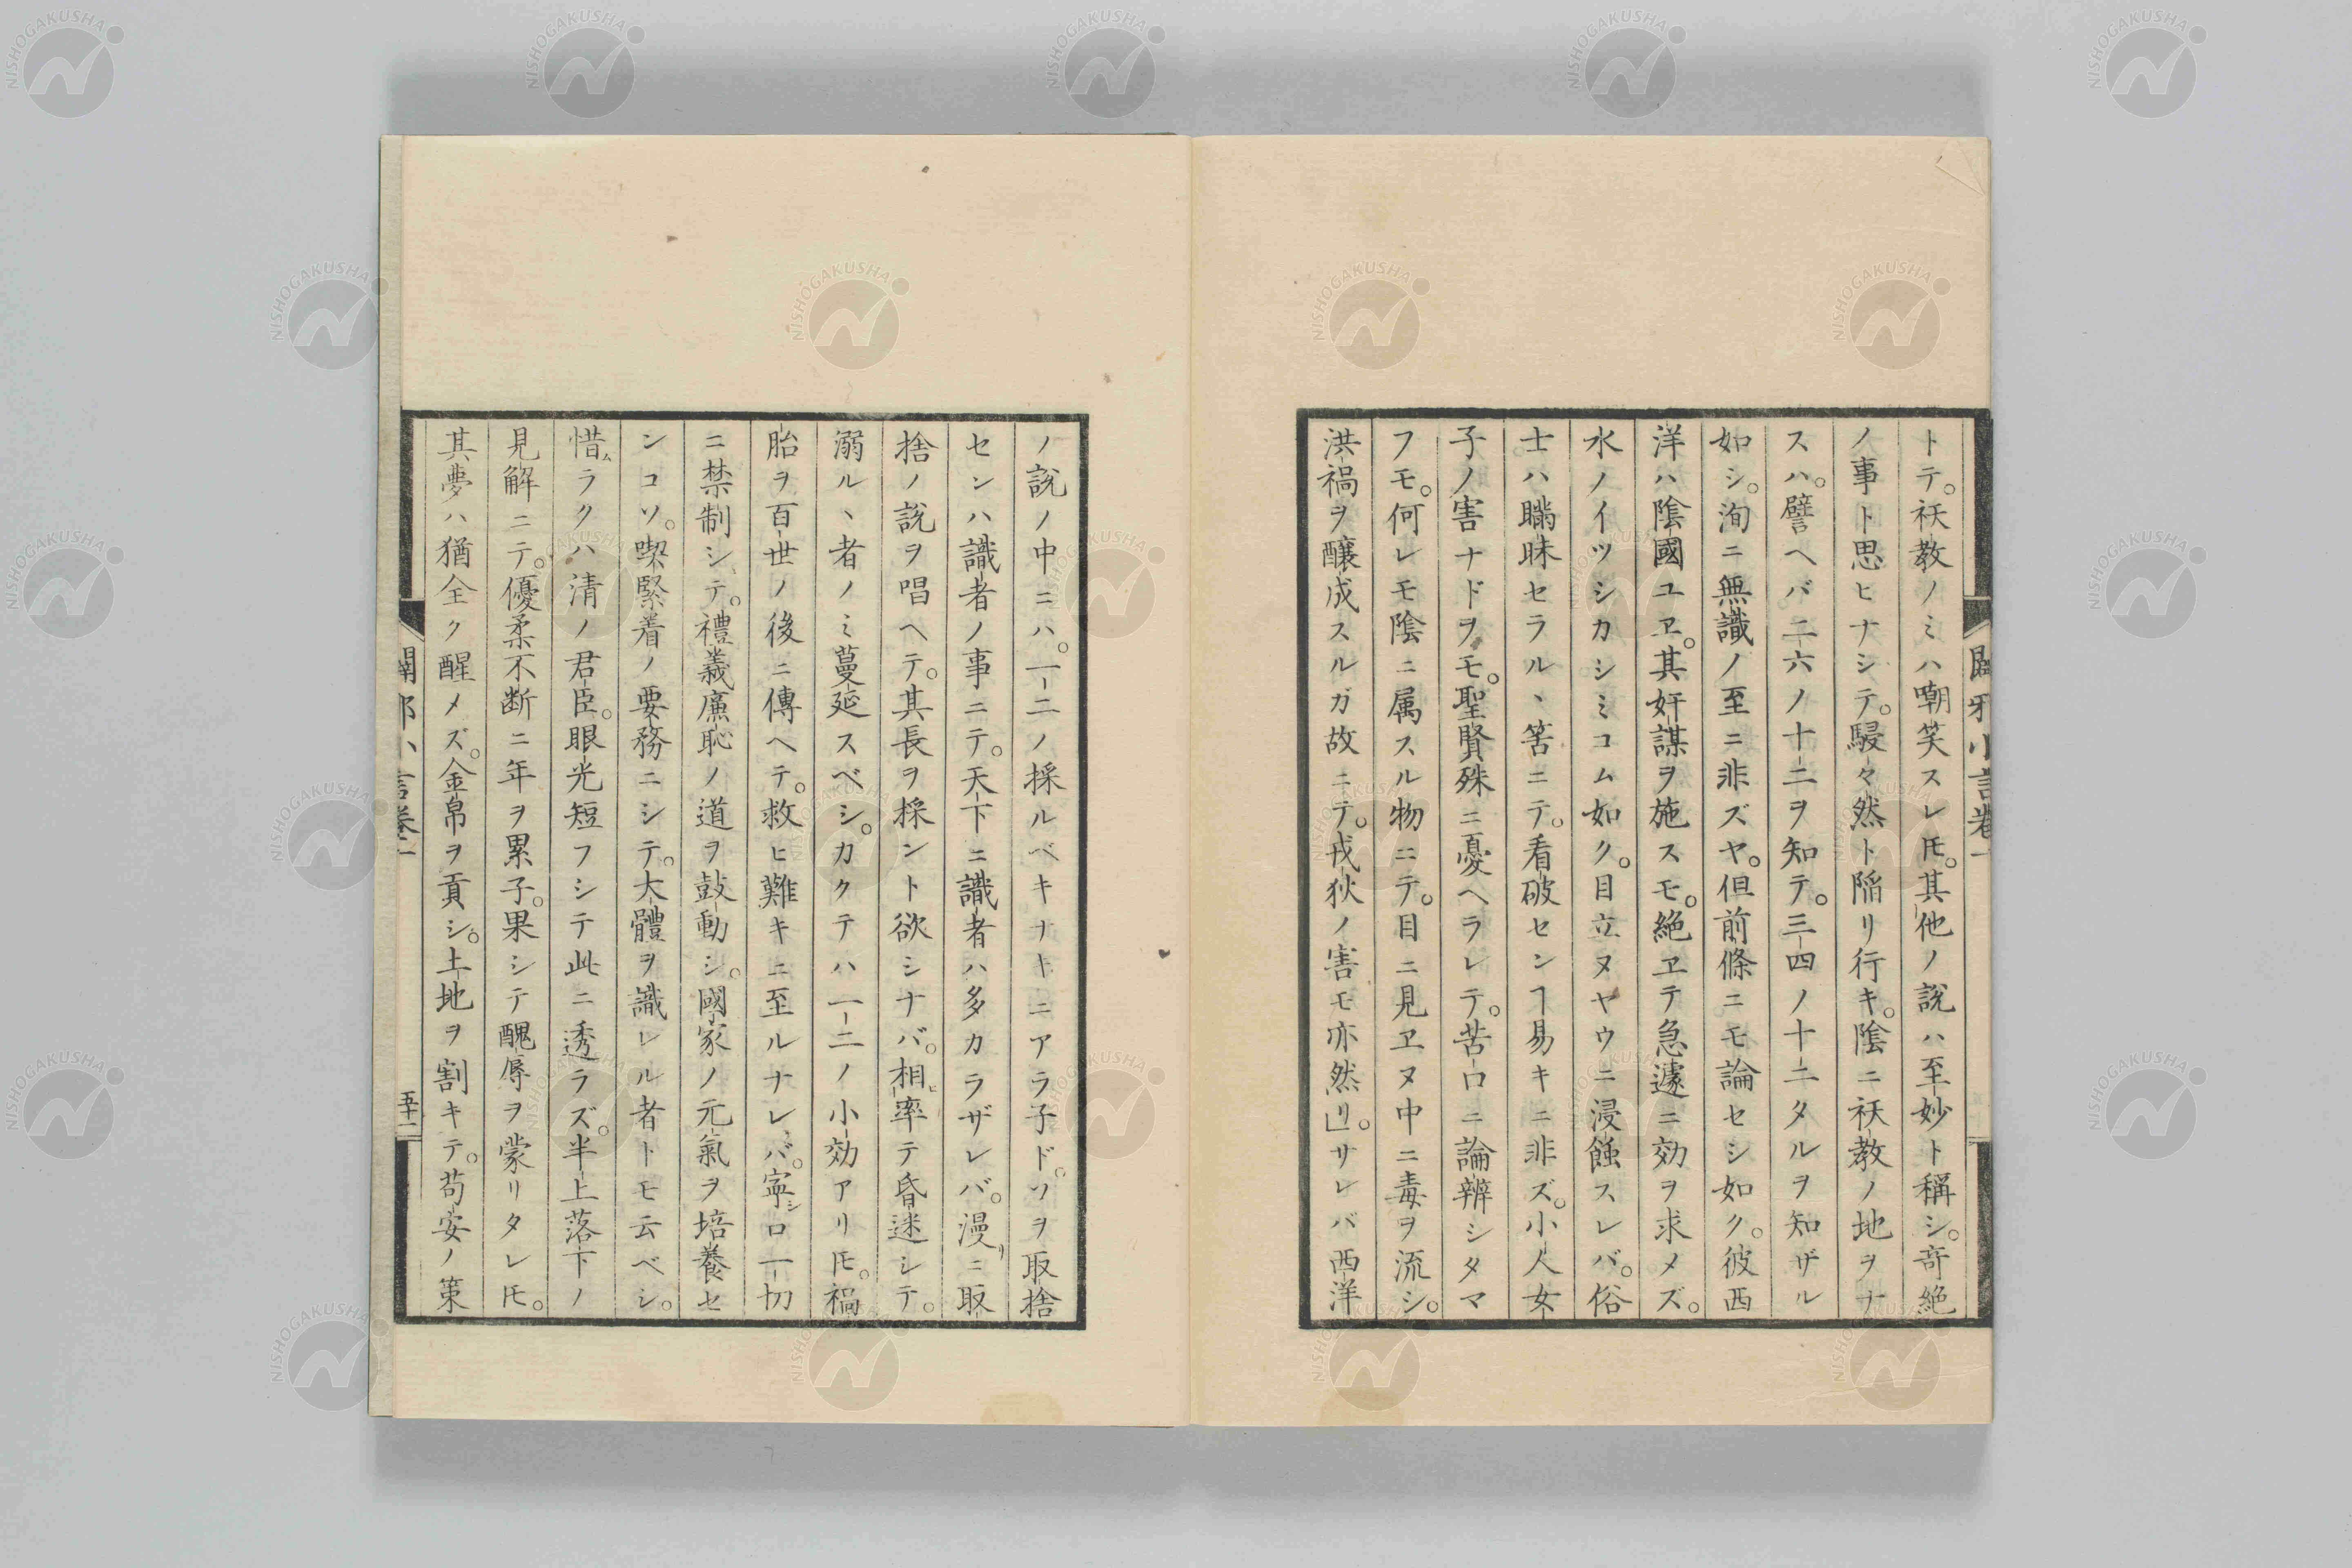 トテ。祅教ノミハ嘲笑スレ𪜈。其他ノ說ハ至妙ト稱シ。竒絶
ノ事ト思ヒナシテ。駸々然ト陷リ行キ。陰ニ祅教ノ地ヲナ
スハ。譬ヘバ二六ノ十二ヲ知テ。三四ノ十二タルヲ知ザル
如シ。洵ニ無識ノ至ニ非ズヤ。但前條ニモ論セシ如ク。彼西
洋ハ陰國ユヱ。其奸謀ヲ施スモ。絶ヱテ急遽ニ効ヲ求メズ。
水ノイツシカシミコム如ク。目立ヌヤウニ浸蝕スレバ。俗
士ハ矇昧セラルヽ筈ニテ。看破センヿ易キニ非ズ。小人女
子ノ害ナドヲモ。聖賢殊ニ憂ヘラレテ。苦口ニ論辨シタマ
フモ。何レモ陰ニ属スル物ニテ。目ニ見ヱヌ中ニ毒ヲ流シ。
洪禍ヲ釀成スルガ故ニテ。戎狄ノ害モ亦然リ」。サレバ西洋
ノ說ノ中ニハ。一二ノ採ルベキナキニアラ子ド。ソヲ取捨
センハ識者ノ事ニテ。天下ニ識者ハ多カラザレバ。漫リニ取
捨ノ說ヲ唱ヘテ。其長ヲ採ント欲シナバ。相ヒ率テ昏迷シテ。
溺ルヽ者ノミ蔓延スベシ。カクテハ一二ノ小効アリ𪜈。禍
胎ヲ百世ノ後ニ傳ヘテ。救ヒ難キニ至ルナレバ。寧シロ一切
ニ禁制シテ。禮義廉恥ノ道ヲ鼓動シ。國家ノ元氣ヲ培養セ
ンコソ。喫緊着ノ要務ニシテ。大體ヲ識レル者トモ云ベシ。
惜ムラクハ清ノ君臣。眼光短フシテ此ニ透ラズ。半上落下ノ
見解ニテ。優柔不断ニ年ヲ累子。果シテ醜辱ヲ蒙リタレ𪜈。
其夢ハ猶全ク醒メズ。金帛ヲ貢シ。土地ヲ割キテ。苟安ノ策